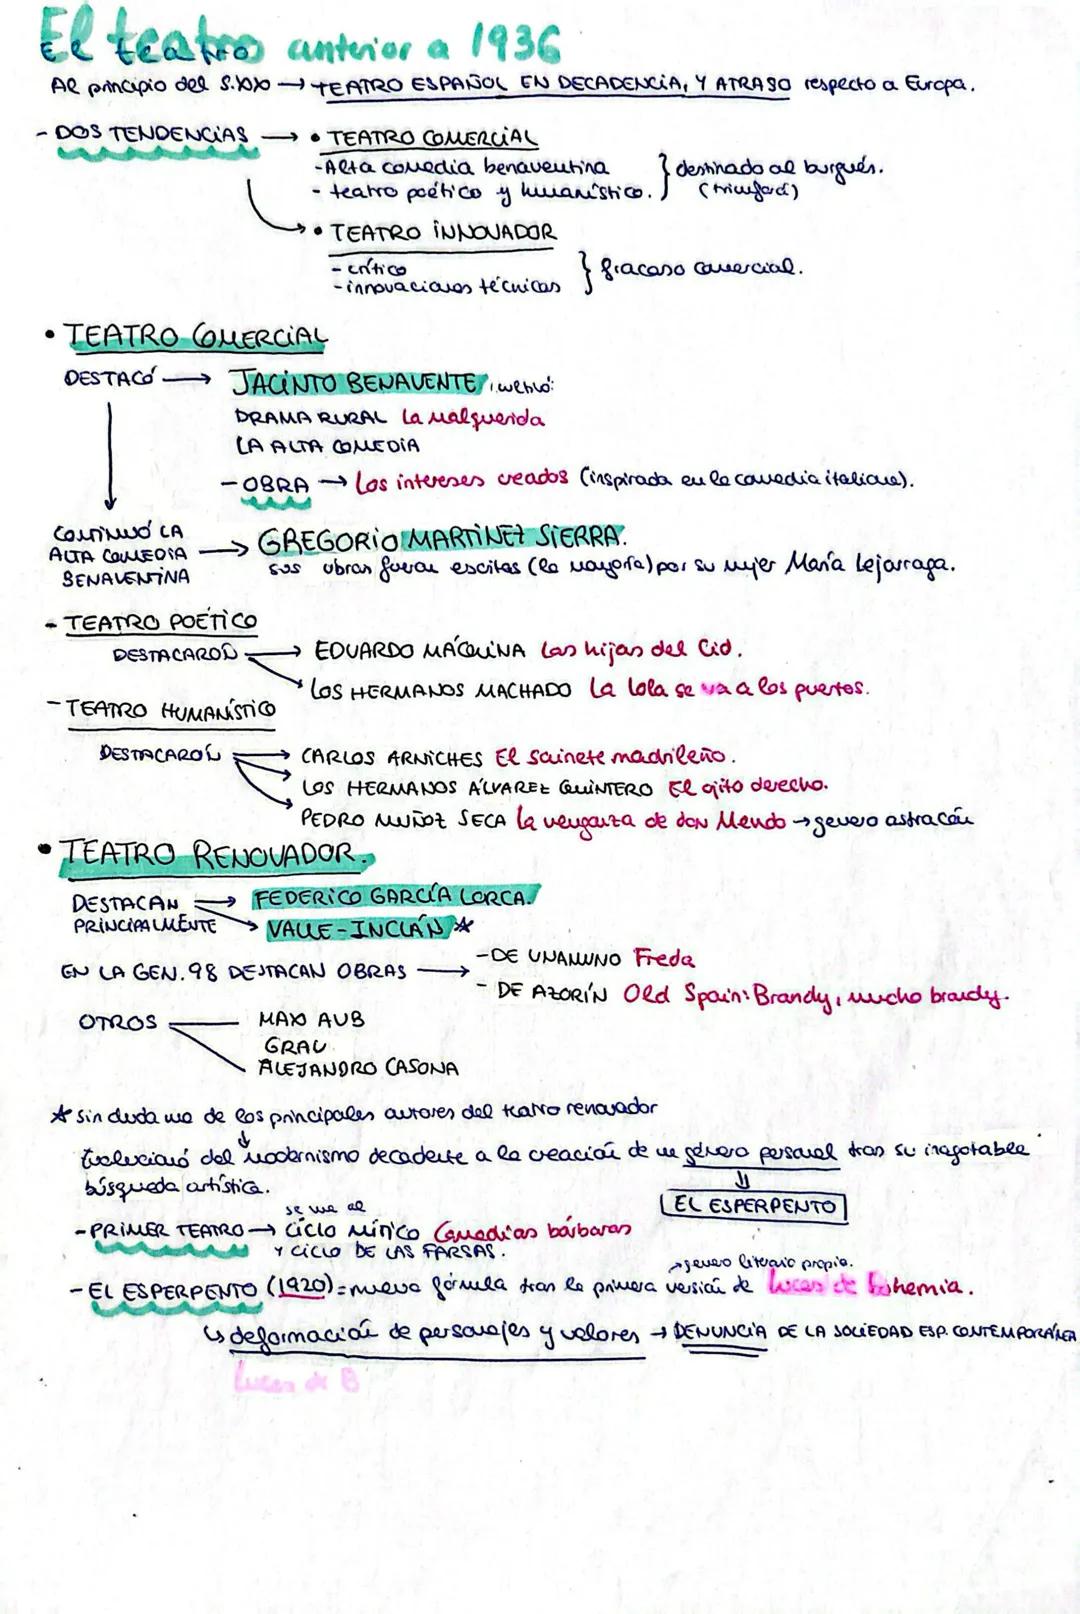 El teatro anterior a 1936
Al principio del S.XX → TEATRO ESPAÑOL EN DECADENCIA, Y ATRASO respecto a Europa.
- DOS TENDENCIAS → • TEATRO COMERCIAL
- Alta comedia benaventina
- teatro poético y humanístico. } destinado al burgués. (triunfará)
• TEATRO INNOVADOR
- crítico
- innovaciones técnicas } fracaso comercial.
• TEATRO COMERCIAL
DESTACÓ → JACINTO BENAVENTE, 
DRAMA RURAL La malquerida
LA ALTA COMEDIA
- OBRA → Los intereses creados (inspirada en la comedia italiana).
CONTINUÓ LA ALTA COMEDIA BENAVENTINA → GREGORIO MARTÍNEZ SIERRA.
sus obras fueron escritas (la mayoría) por su mujer María Lejarraga.
- TEATRO POÉTICO
DESTACARON → EDUARDO MÁQUINA Las hijas del Cid.
LOS HERMANOS MACHADO La Lola se va a los puertos.
- TEATRO HUMANÍSTICO
DESTACARON → CARLOS ARNICHES El sainete madrileño.
→ LOS HERMANOS ÁLVAREZ QUINTERO El ojito derecho.
→ PEDRO MUÑOZ SECA la venganza de don Mendo → género astracán
• TEATRO RENOVADOR.
DESTACAN PRINCIPALMENTE → FEDERICO GARCÍA LORCA.
→ VALLE-INCLÁN *
EN LA GEN.98 DESTACAN OBRAS → - DE UNAMUNO Freda
- DE AZORÍN Old Spain: Brandy, mucho brandy.
OTROS MAX AUB
GRAU
ALEJANDRO CASONA
* Sin duda uno de los principales autores del teatro renovador
↓
Evolucionó del modernismo decadente a la creación de un género personal tras su inagotable
búsqueda artística.
⇓
EL ESPERPENTO
- PRIMER TEATRO → se une al ciclo mítico Comedias bárbaras
Y CICLO DE LAS FARSAS.
→ género literario propio.
- EL ESPERPENTO (1920) = nueva fórmula tras la primera versión de Luces de Bohemia.
↳ deformación de personajes y valores → DENUNCIA DE LA SOCIEDAD ESP. CONTEMPORÁNEA
Luces de B